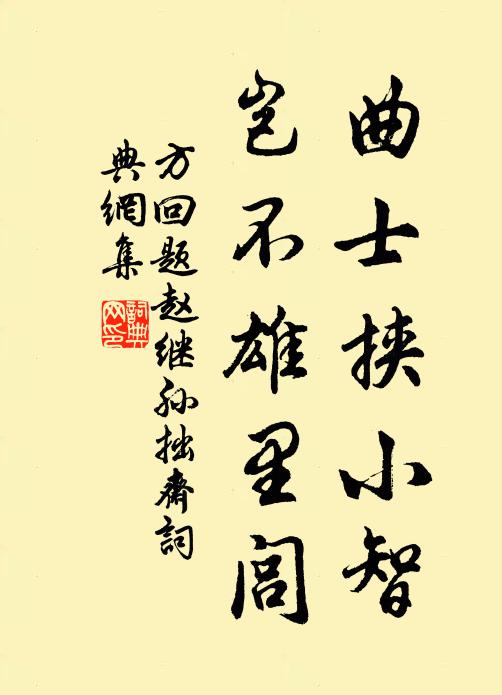 曲士挟小智
岂不雄里闾
方回题赵继孙拙斋词
典網集
詞典
网印